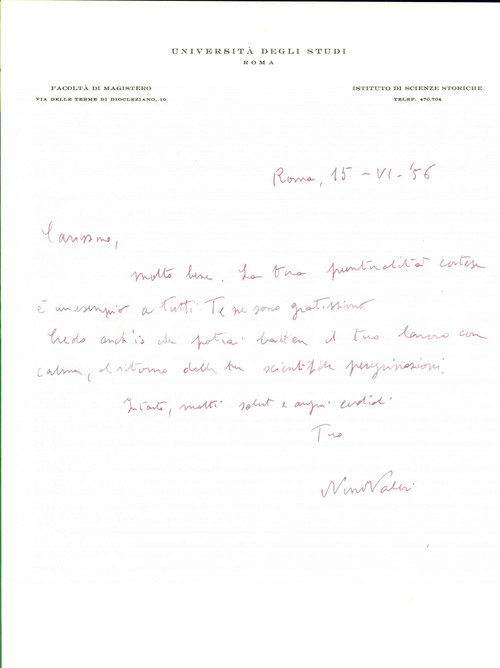 UNIVERSITÀ DEGLI STUDI
ROMA
FACOLTÀ DI MAGISTERO
VIA DELLE TERME DI DIOCLEZIANO, 10
ISTITUTO DI SCIENZE STORICHE
TELEF. 470.704
Roma, 15 - VI - '56
Carissimo,
molto bene. La tua puntualità cortese
è un esempio a tutti. Te ne sono gratissimo
Credo anch'io che potrai batter il tuo lavoro con
calma, al ritorno delle tue scientifiche peregrinazioni.
Intanto, molti saluti e auguri cordiali
Tuo
Nino Valeri